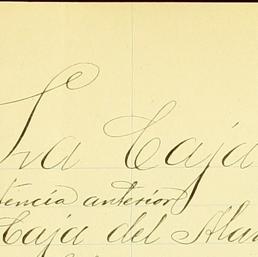 La Caja
tencia anterior
Caja del Alu